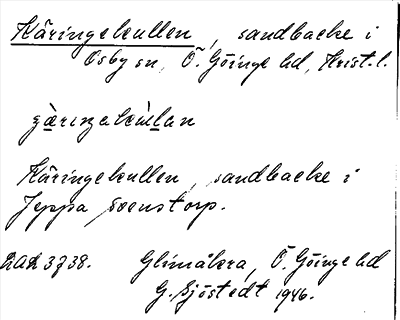 Käringekullen, sandbacke i
Osby sn, Ö. Göinge hd, Krist. l.
Käringekullen, sandbacke i
Jeppa Svenstorp.
Glimåkra, Ö. Göinge hd
G. Sjöstedt 1946.